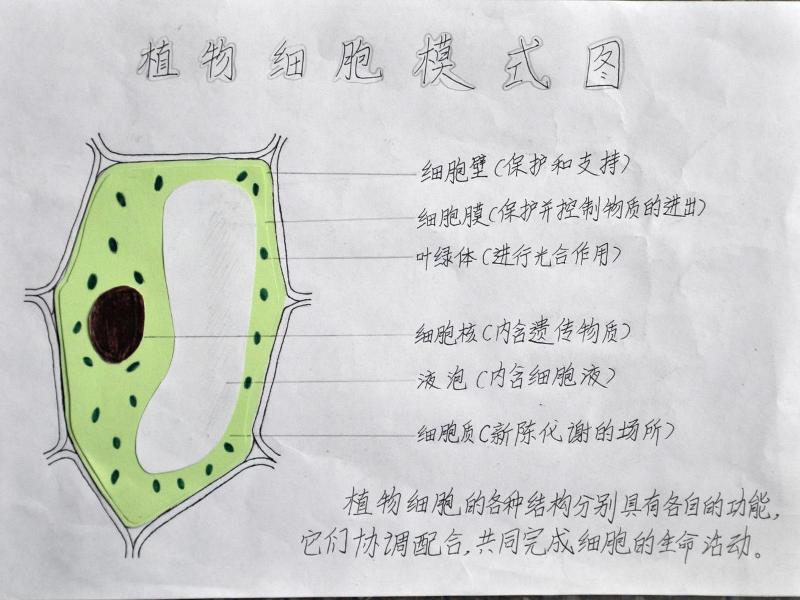 植物细胞模式图
细胞壁(保护和支持)
细胞膜(保护并控制物质的进出)
叶绿体(进行光合作用)
细胞核(内含遗传物质)
液泡(内含细胞液)
细胞质(新陈代谢的场所)
植物细胞的各种结构分别具有各自的功能,
它们协调配合,共同完成细胞的生命活动。